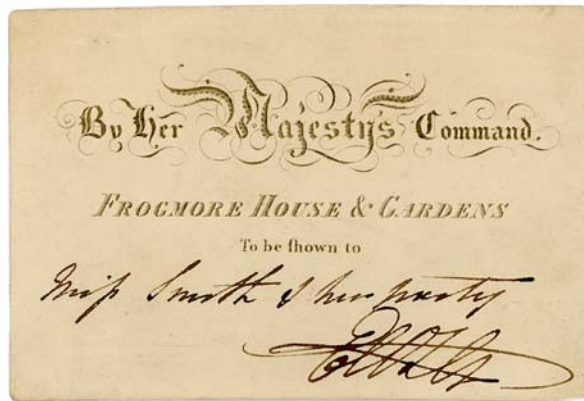 By Her Majesty's Command.
FROGMORE HOUSE & GARDENS
To be ſhown to
Miſs Smith & her party